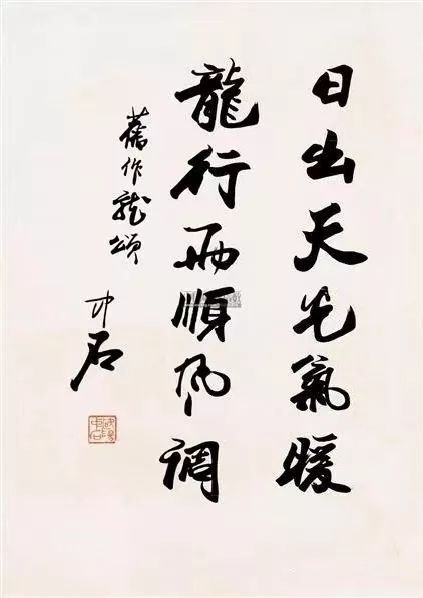 日出天光氣暖
龍行雨順風調
舊作龍頌
中石